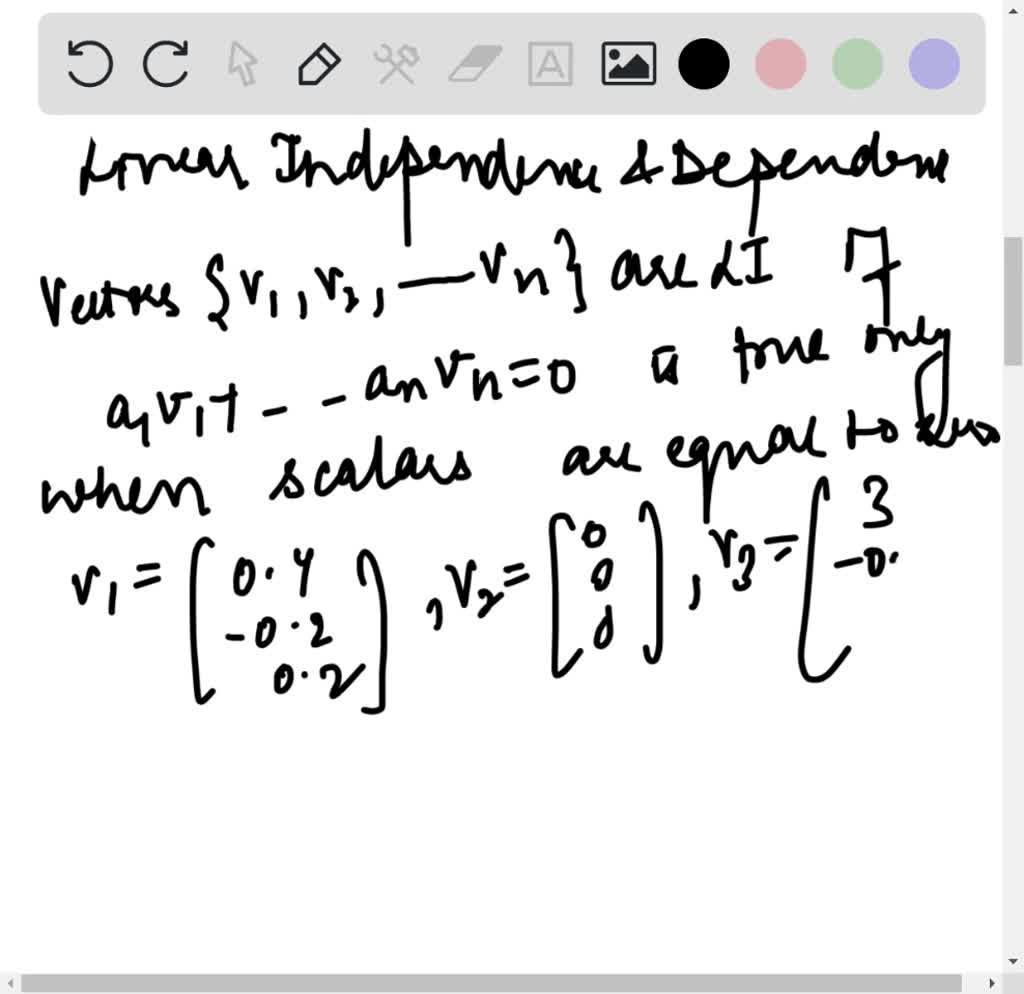 Linear Independence & Dependence
Vectors {v1, v2, — vn} are LI if
a1v1+ - - anvn=0 is true only
when scalars are equal to zero
v1 = [0.4 -0.2 0.2], v2 = [0 0 0], v3 = [3 -0.